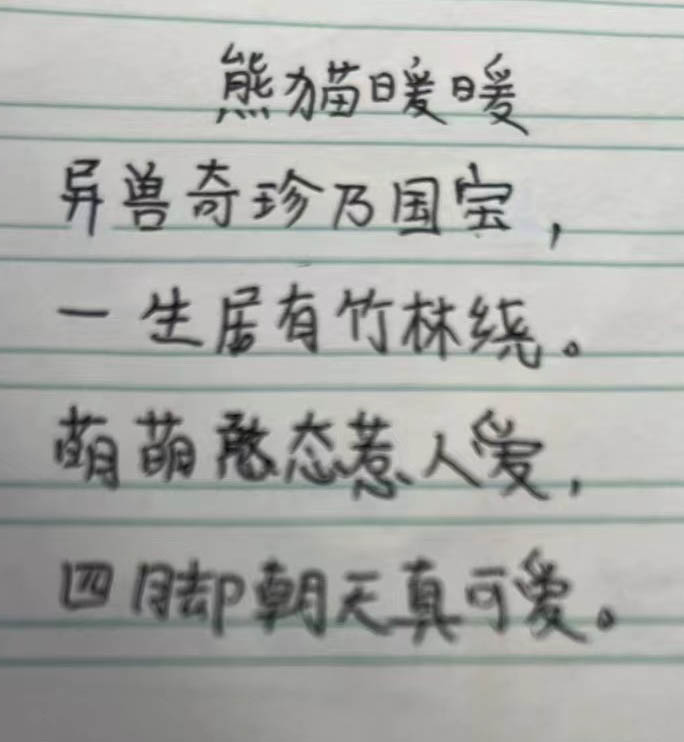 熊猫暖暖
异兽奇珍乃国宝，
一生居有竹林绕。
萌萌憨态惹人爱，
四脚朝天真可爱。